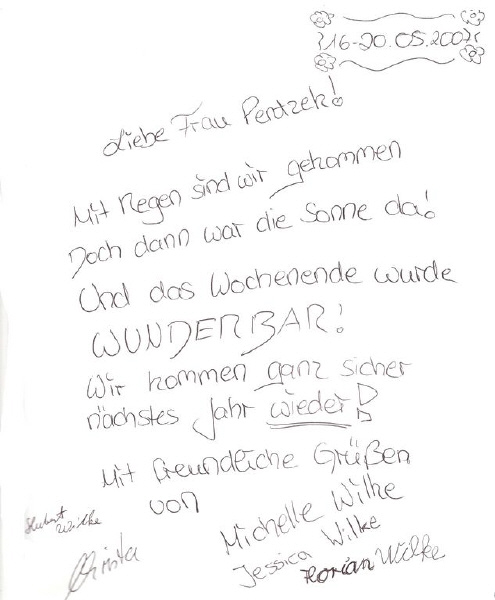 16-20.05.2007
Liebe Frau Perdzek!
Mit Regen sind wir gekommen
Doch dann war die Sonne da!
Und das Wochenende wurde
WUNDERBAR!
Wir kommen ganz sicher
nächstes Jahr wieder!
Mit freundliche Grüßen
von
Michelle Wilke
Jessica Wilke
Florian Wilke
Hubert Wilke
Christa